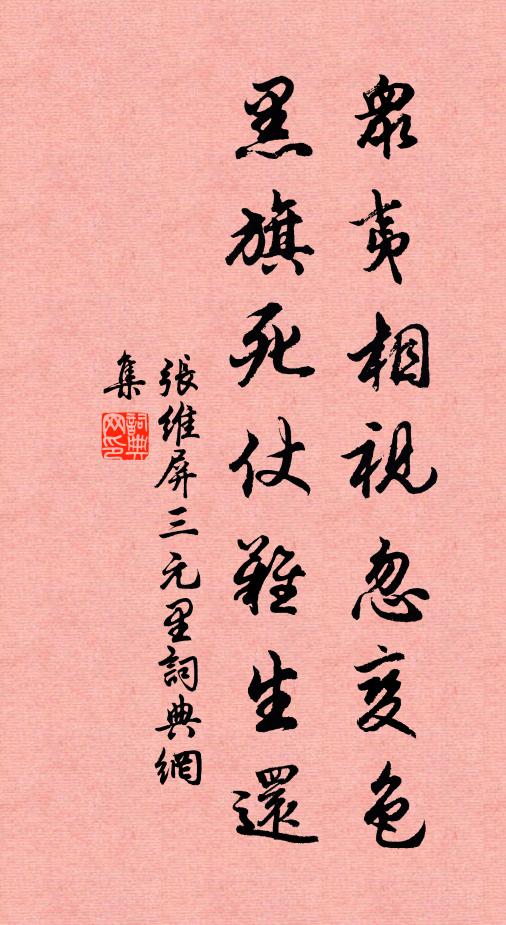 衆夷相視忽变色
黑旗死仗難生還
張維屏三元里詞典網
集
詞典
网印